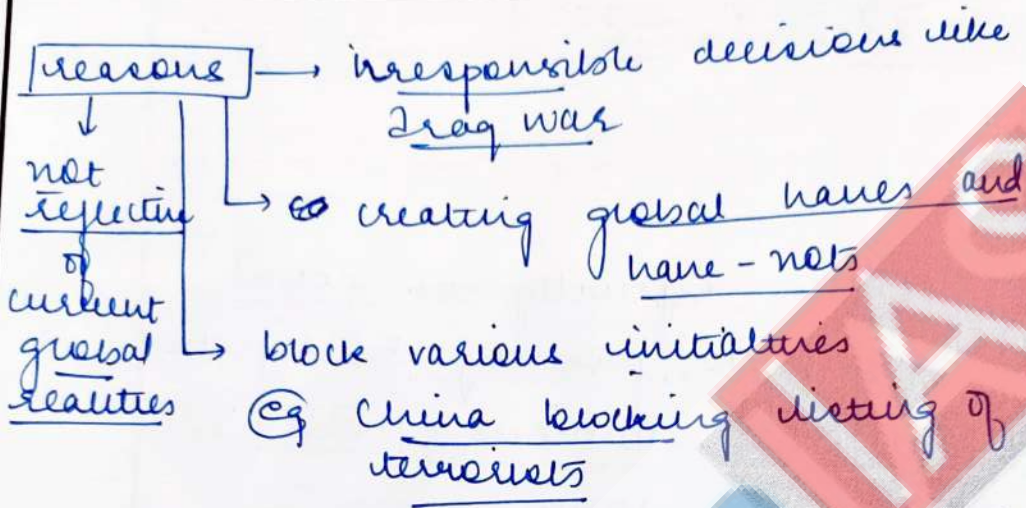 reasons → irresponsible decisions like
Iraq war
not
reflective
of
current
global
realities
→ creating global haves and
have-nots
→ block various initiatives
eg China blocking listing of
terrorists
IAS